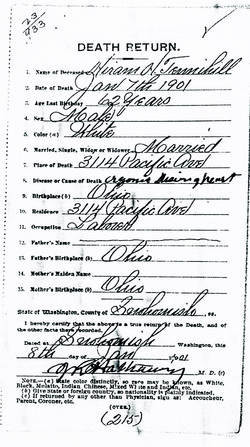 DEATH RETURN.
1. Name of Deceased Hiram H Tannihill
2. Date of Death Jan 7th 1901
3. Age Last Birthday 62 Years
4. Sex Male
5. Color (a) White
6. Married, Single, Widow or Widower Married
7. Place of Death 3114 Pacific Ave
8. Disease or Cause of Death heart
9. Birthplace (b) Ohio
10. Residence 3114 Pacific Ave
11. Occupation Laborer
12. Father's Name
13. Father's Birthplace (b) Ohio
14. Mother's Maiden Name
15. Mother's Birthplace (b) Ohio
State of Washington, County of Snohomish
I hereby certify that the above is a true return of the Death, and of
the other facts there recorded.
Dated at Snohomish Washington, this
8th day of Jan 1901
NOTE.—(a) State color distinctly, so race may be known, as White,
Black, Mulatto, Indian, Chinese, Mixed White and Indian, etc.
(b) Give state or foreign country, so nationality is plainly indicated.
(c) If returned by any other than Physician, say as: Accoucheur,
Parent, Coroner, etc.
(OVER)
(215)